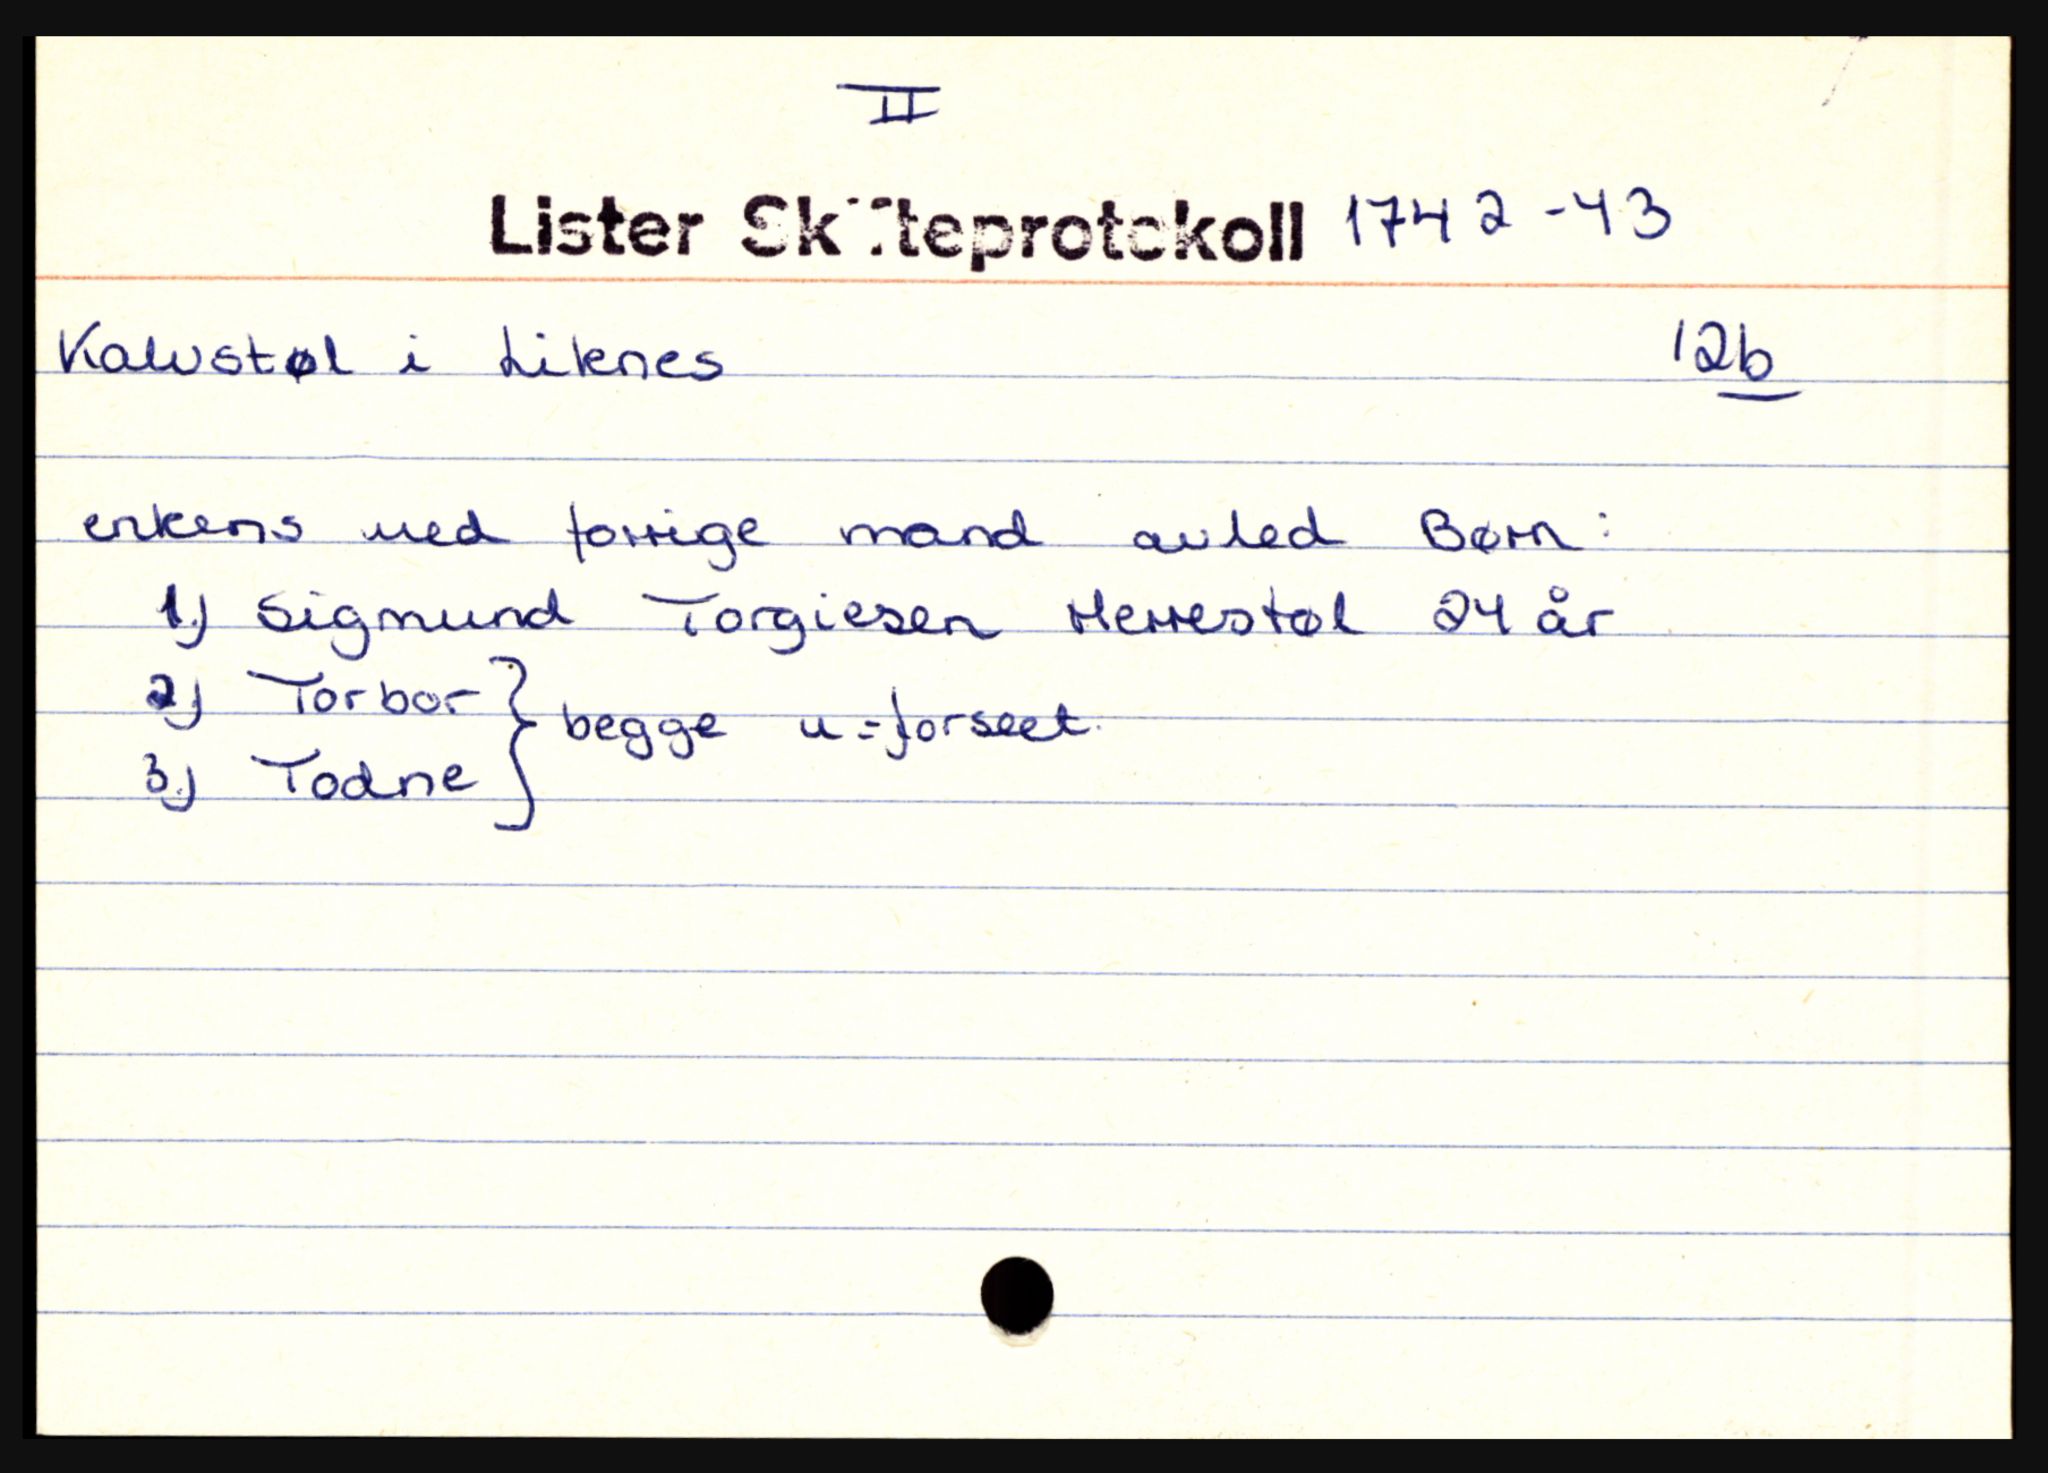 II
Lister Skifteprotokoll 1742-43
Kalvstøl i Liknes 12b
enkens med forrige mand avled Børn:
1.) Sigmund Torgiesen Herrestøl 24 år
2) Torbor } begge u=forseet.
3.) Todne